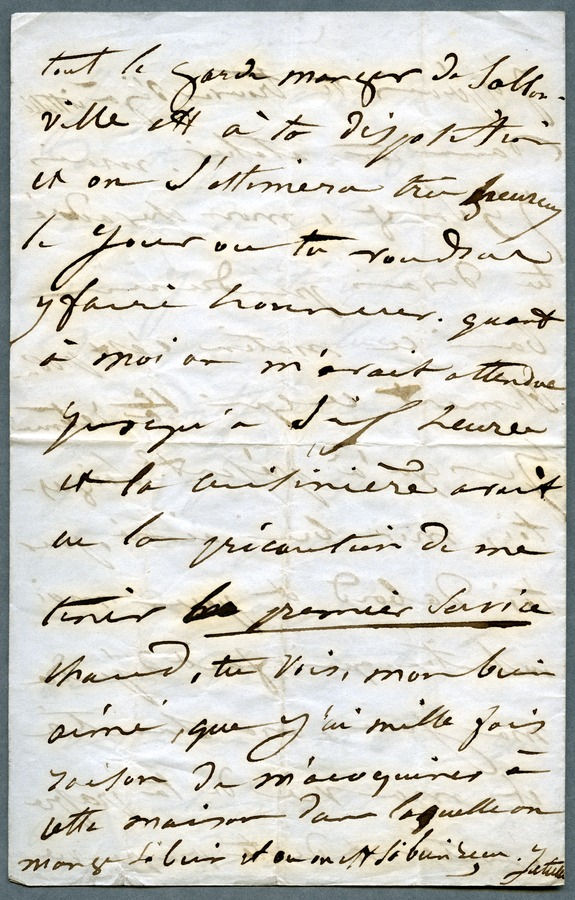 tout le garde manger de Sablon-
ville est à ta disposition
et on s'estimera très heureux
le jour ou tu voudras
y faire honneur. quant
à moi on m'avait attendue
jusqu'à six heures
et la cuisinière avait
eu la précaution de me
tenir le premier service
chaud, tu vois, mon bien
aimé, que j'ai mille fois
raison de m'acoquiner à
cette maison dans laquelle on
mange si bien et ou on est si bien reçu.